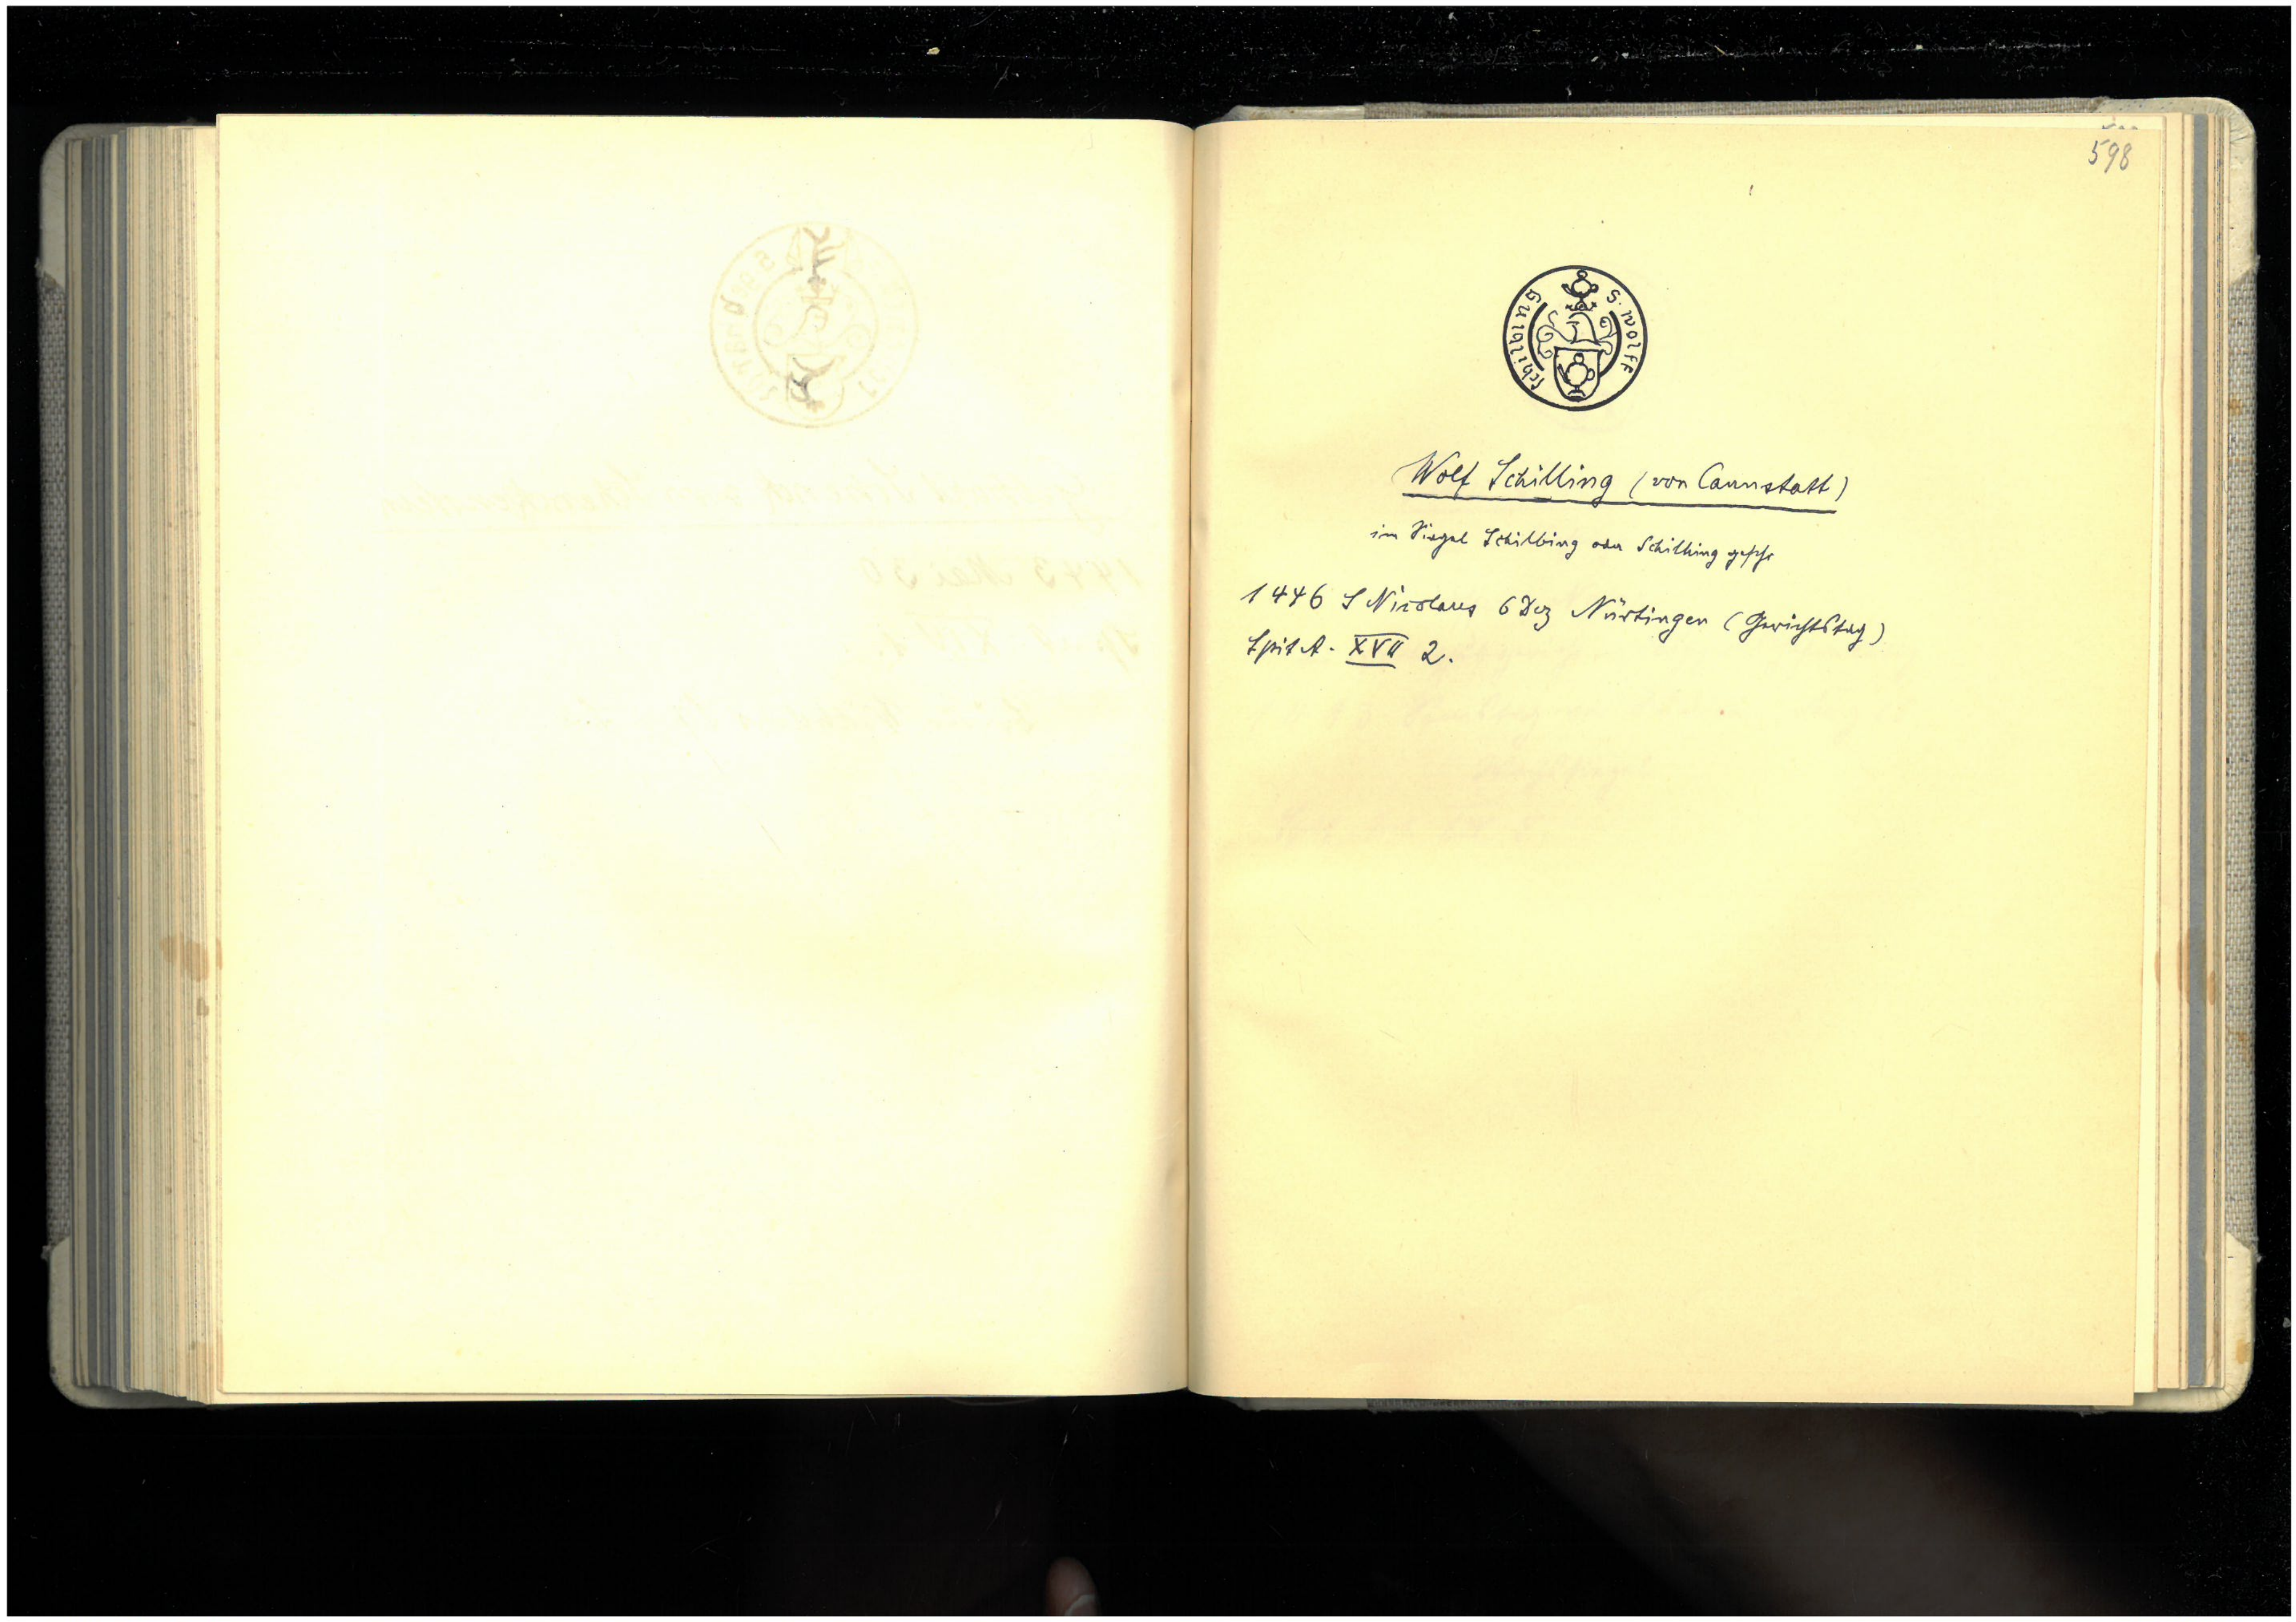 598
S. wolff schilbing
Wolf Schilling (von Cannstatt)
im Siegel Schilbing oder Schilhing geschr
1446 S Nicolaus 6 Dez Nürtingen (Gerichtstag)
Spit A. XVII 2.